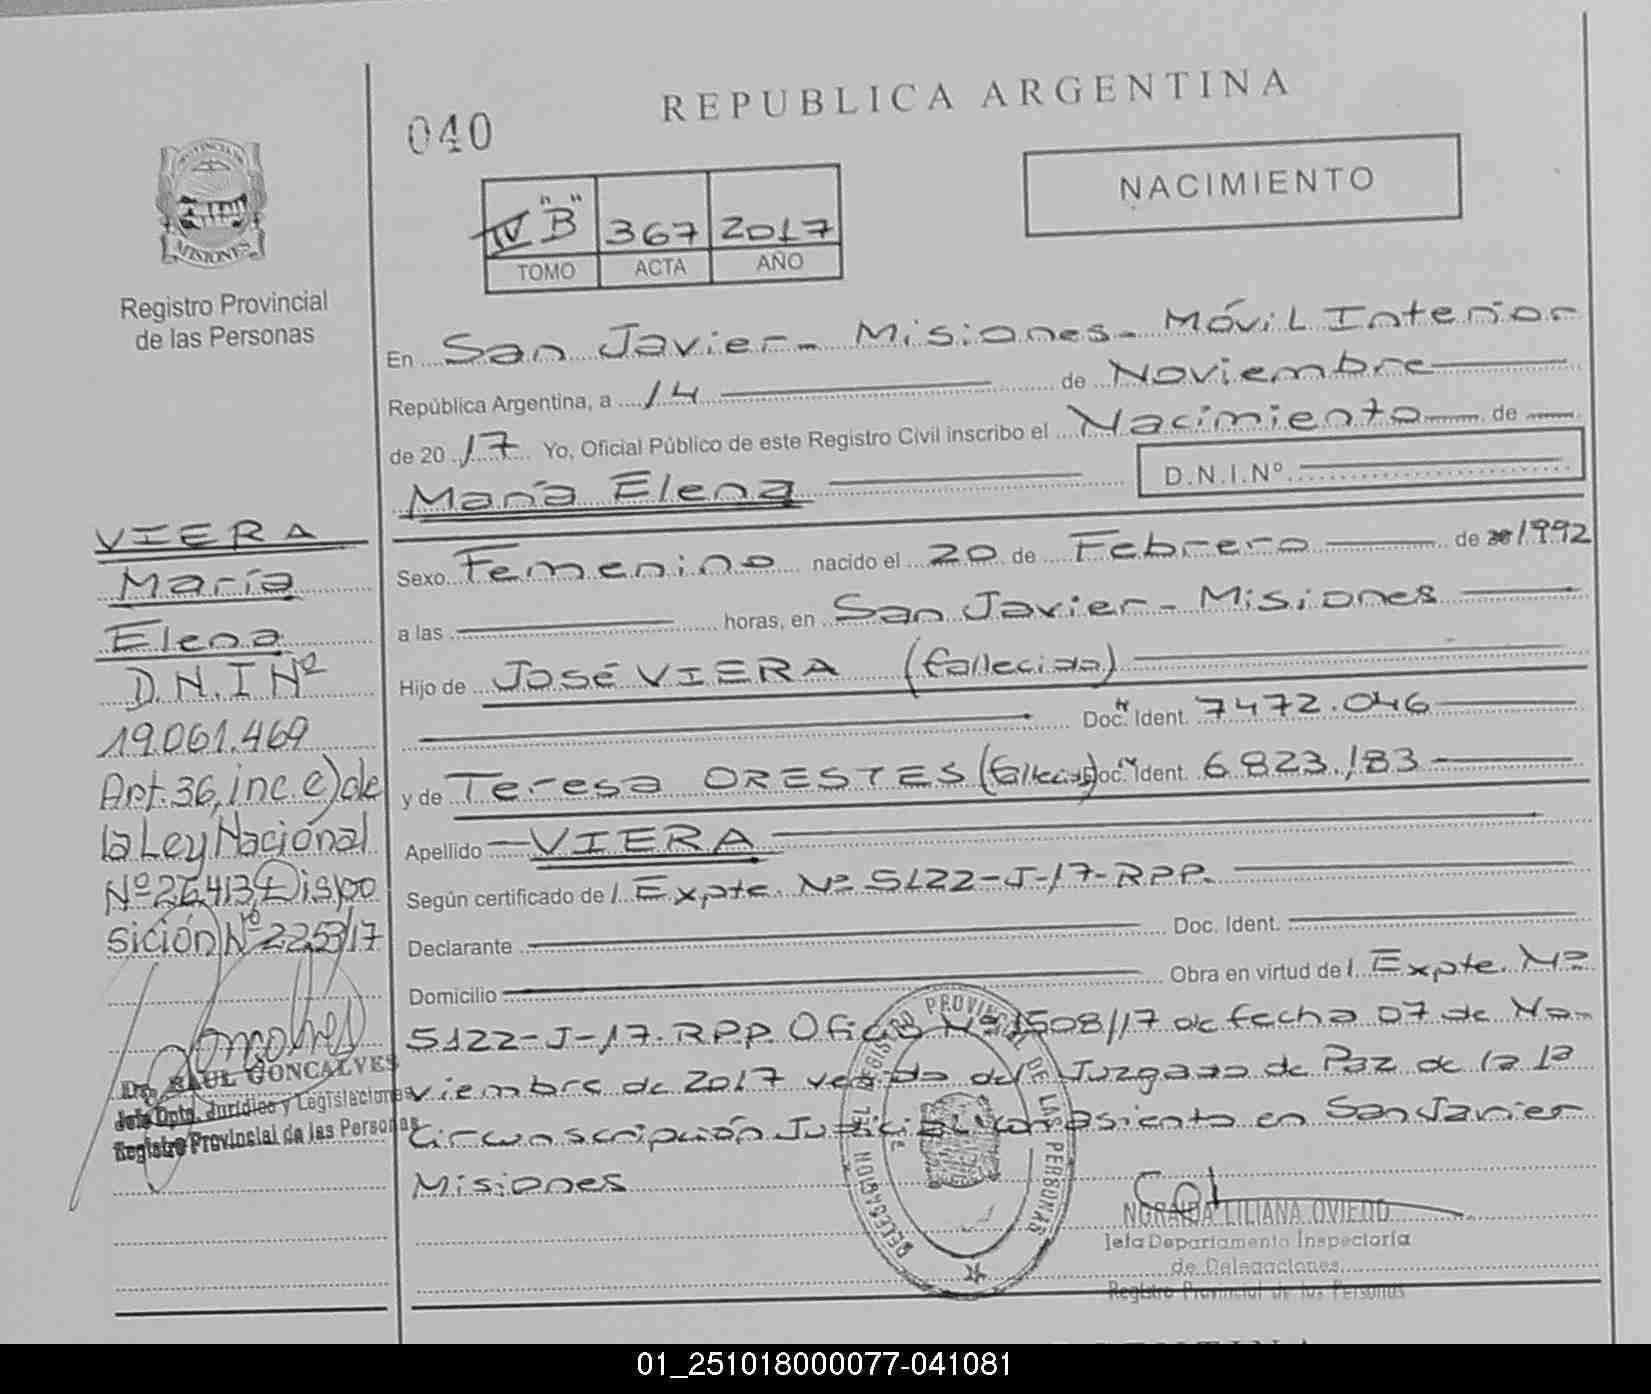 REPUBLICA ARGENTINA
040
NACIMIENTO
IV "B" 367 2017
TOMO ACTA AÑO
PROVINCIA DE
MISIONES
Registro Provincial
de las Personas
En San Javier - Misiones - Móvil Interior
República Argentina, a 14 de Noviembre
de 2017 Yo, Oficial Público de este Registro Civil inscribo el Nacimiento de
María Elena D.N.I.Nº
Sexo Femenino nacido el 20 de Febrero de 1992
a las horas, en San Javier - Misiones
Hijo de José VIERA (fallecido)
Doc. Ident. 7472.046
y de Teresa ORESTES (fallecida) Doc. Ident. 6823.183
Apellido VIERA
Según certificado de l Expte. Nº 5122-J-17-RPP.
Declarante Doc. Ident.
Domicilio Obra en virtud de l Expte. Nº
5122-J-17-RPP Oficio Nº 1508/17 de fecha 07 de No-
viembre de 2017 venido del Juzgado de Paz de la 1ª
Circunscripción Judicial con asiento en San Javier
Misiones
VIERA
María
Elena
D.N.I Nº
19.061.469
Art.36, inc.c) de
la Ley Nacional
Nº 26.413, Dispo
sición Nº 2253/17
Dr. RAUL GONCALVES
Jefe Dpto. Jurídico y Legislaciones
Registro Provincial de las Personas
DELEGACION DEL REGISTRO PROVINCIAL DE LAS PERSONAS
LILIANA OVIEDO
Jefa Departamento Inspectoría
de Delegaciones
Registro Provincial de las Personas
01_251018000077-041081